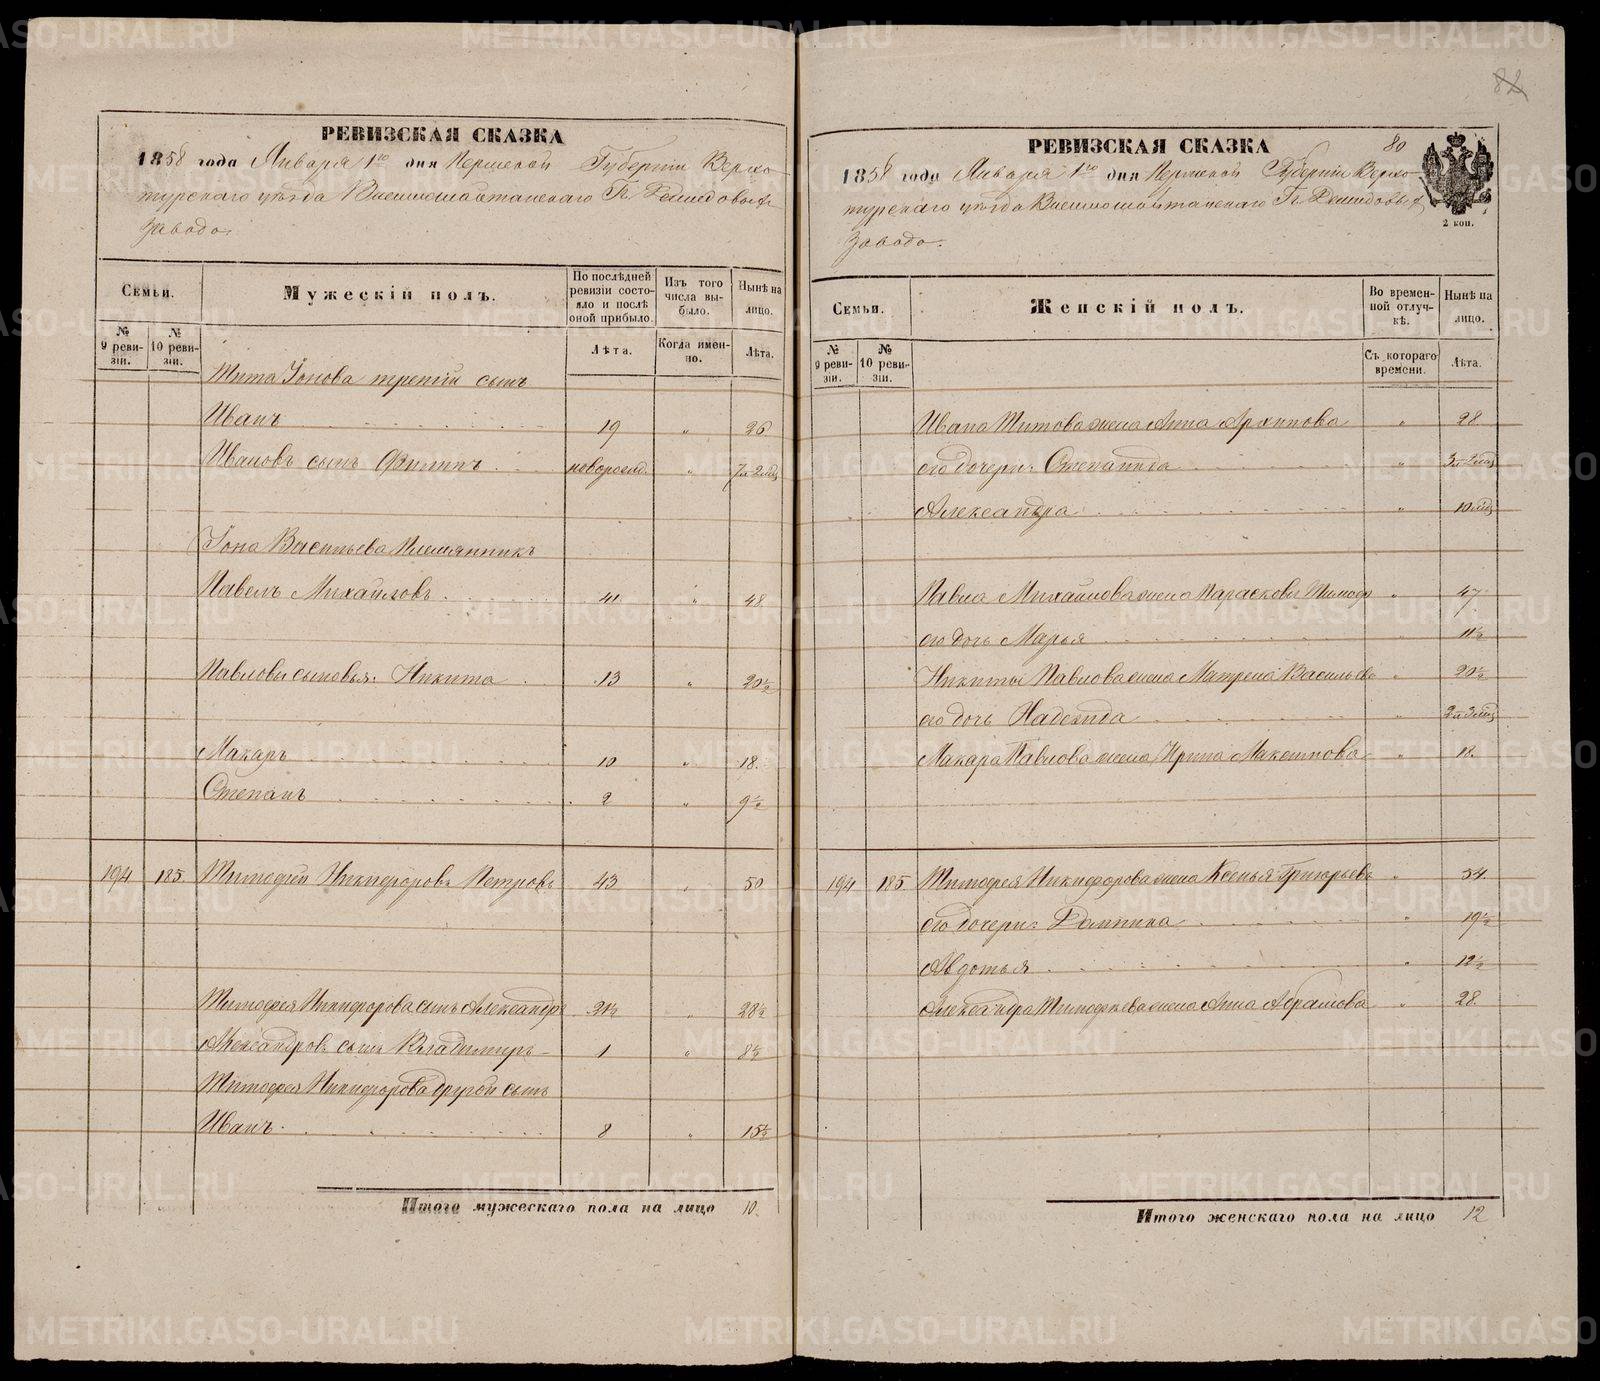 РЕВИЗСКАЯ СКАЗКА
1858 года Января 1го дня Пермской Губернiи Верхо-
турскаго уѣзда Висимошайтанскаго Гг. Демидовыхъ
завода.
Семьи.
Мужескiй полъ.
По послѣдней ревизiи состояло и послѣ оной прибыло.
Изъ того числа выбыло.
Нынѣ на лицо.
№ 9 ревизiи.
№ 10 ревизiи.
Лѣта.
Когда именно.
Лѣта.
Тита Iонова третiй сынъ
Иванъ 19 " 26
Ивановъ сынъ Филипъ новорожд. " 7 л 2 мѣц
Iона Васильева племянникъ
Павелъ Михайловъ 41 " 48
Павловы сыновья: Никита 13 " 20½
Макаръ 10 " 18.
Степанъ 2 " 9½
194 185. Тимофей Никифоровъ Петровъ 43 " 50
Тимофея Никифорова сынъ Александръ 21½ " 28½
Александровъ сынъ Владимиръ 1 " 8½
Тимофея Никифорова другой сынъ
Иванъ 8 " 15½
Итого мужескаго пола на лицо 10.
82
РЕВИЗСКАЯ СКАЗКА 80
1858 года Января 1го дня Пермской Губернiи Верхо-
турскаго уѣзда Висимошайтанскаго Гг. Демидовыхъ
завода.
2 коп.
Семьи.
Женскiй полъ.
Во временной отлучкѣ.
Нынѣ на лицо.
№ 9 ревизiи.
№ 10 ревизiи.
Съ котораго времени.
Лѣта.
Ивана Титова жена Анна Архипова " 28
его дочери: Степанида " 3 л 2 мѣц
Александра " 10 мѣц
Павла Михайлова жена Парасковья Тимоф " 47
его дочь Марья " 11½
Никиты Павлова жена Матрена Васильева " 20½
его дочь Надежда " 2 л 3 мѣц
Макара Павлова жена Ирина Максимова " 18.
194 185. Тимофея Никифорова жена Ксенья Григорьева " 54.
его дочери: Домника " 19½
Авдотья " 12½
Александра Тимофеева жена Анна Абрамова " 28.
Итого женскаго пола на лицо 12
METRIKI.GASO-URAL.RU